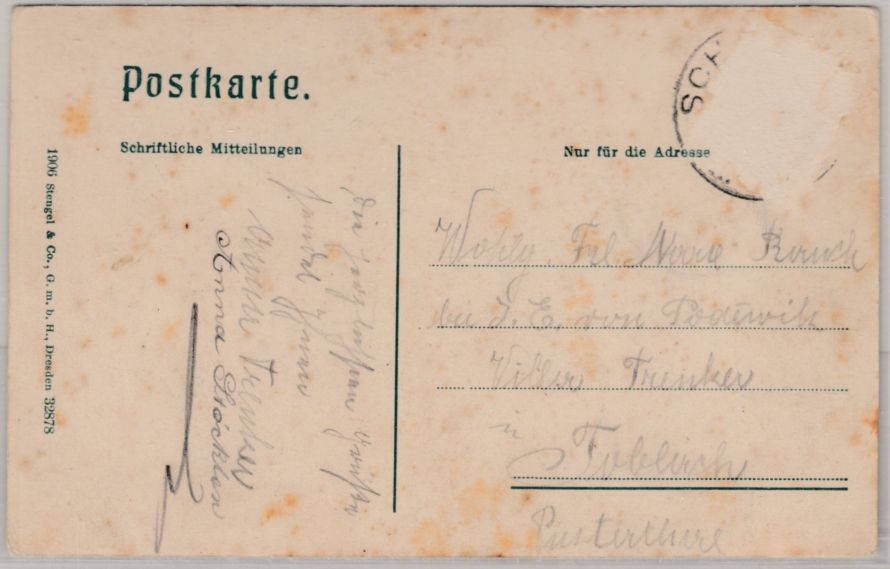 Postkarte.
Schriftliche Mitteilungen
Nur für die Adresse
SCH
1906 Stengel & Co., G. m. b. H., Dresden 32878
Die herzlichsten Grüße
sendet Ihnen
Trenker
Anna Stöcklon
Wohlg. Frl. Rauch
bei I. E. von Podewils
Villa Trenker
in
Toblach
Pusterthal